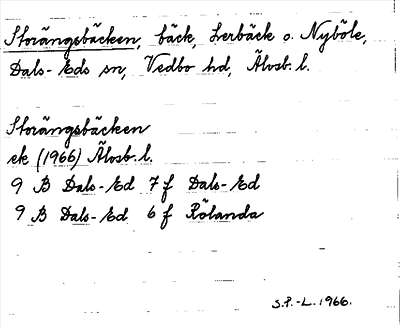 Storängsbäcken, bäck, Lerbäck o. Nyböle,
Dals-Eds sn, Vedbo hd, Älvsb. l.
Storängsbäcken
ek (1966) Älvsb. l.
9 B Dals-Ed 7 f Dals-Ed
9 B Dals-Ed 6 f Rölanda
S.P.-L. 1966.